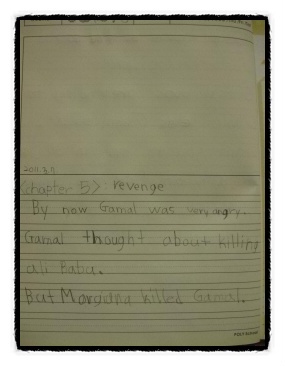 2011. 3. 11
Chapter 5> : revenge
By now Gamal was very angry.
Gamal thought about killing
ali Baba.
But Morgiana killed Gamal.